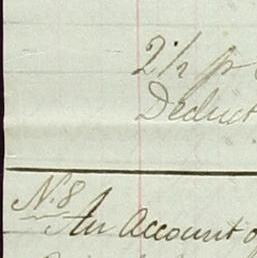 2½ p
Deduct
N. 8
An Account of